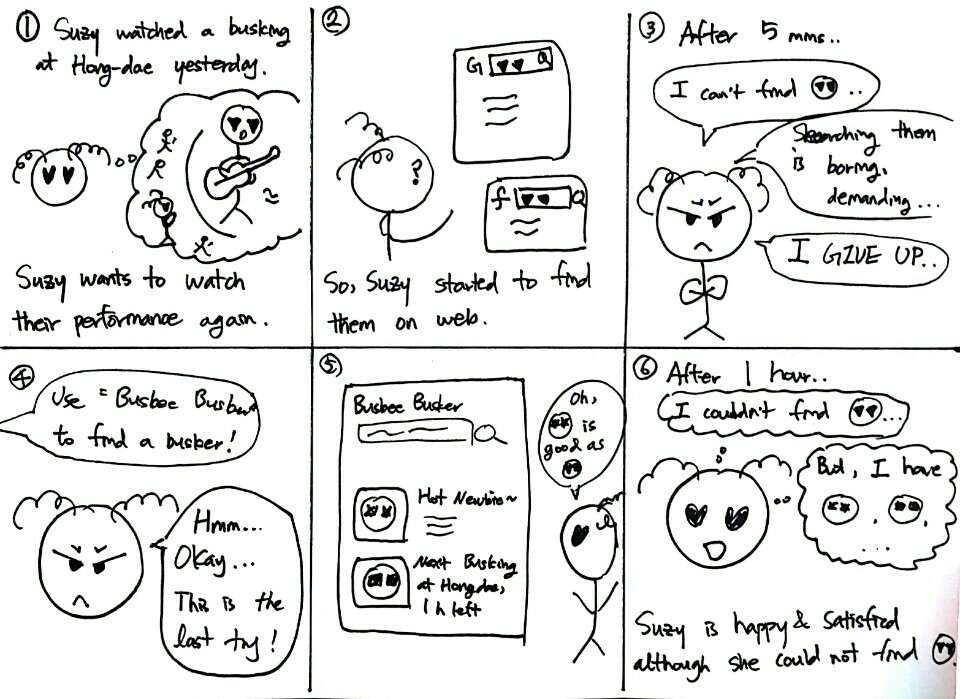 ① Suzy watched a busking
at Hong-dae yesterday.
Suzy wants to watch
their performance again.
②
G
Q
?
f
Q
So, Suzy started to find
them on web.
③ After 5 mins..
I can't find ..
Searching them
is boring,
demanding...
I GIVE UP..
④
Use "Busbee Busker
to find a busker!
Hmm...
Okay...
This is the
last try!
⑤
Busbee Busker
Hot Newbie~
Next Busking
at Hongdae,
1 h left
Oh,
is
good as
⑥ After 1 hour..
I couldn't find ...
But, I have
, ,
...
Suzy is happy & satisfied
although she could not find .